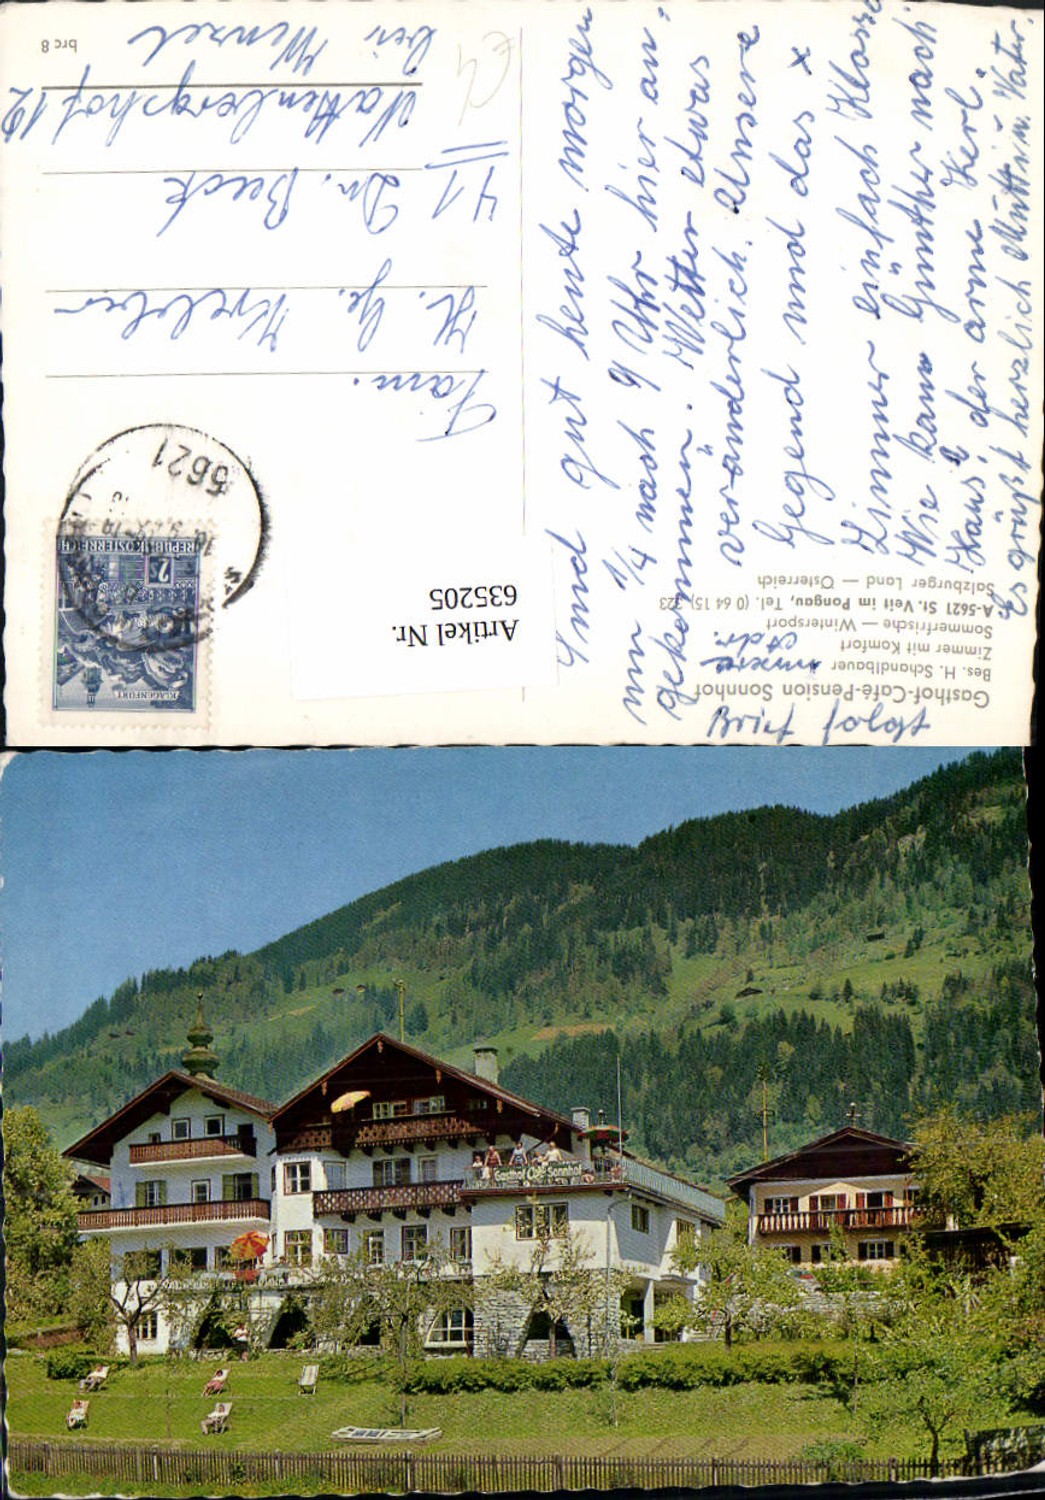 Gasthof-Café-Pension Sonnhof
Bes. H. Schandlbauer
Zimmer mit Komfort
Sommerfrische — Wintersport
A-5621 St. Veit im Pongau, Tel. (0 64 15) 323
Salzburger Land — Österreich
Brief folgt
unsere
Adr.
Sind gut heute morgen
um 1/4 nach 9 Uhr hier an-
gekommen. Wetter etwas
veränderlich. Unsere
Gegend und das x
Zimmer einfach Klasse
Wie kam Günther nach
Haus, der arme Kerl"
Es grüßt herzlich Mutti u. Vater.
Artikel Nr.
635205
KLAGENFURT
2 S
REPUBLIK ÖSTERREICH
5621
Fam.
H. Gg.
41 Dr. Beck
bei Menzel
brc 8
Gasthof Café Sonnhof